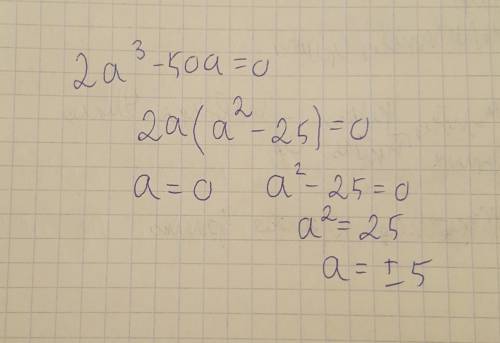 2a³ - 50a = 0
2a(a² - 25) = 0
a = 0 a² - 25 = 0
a² = 25
a = ± 5